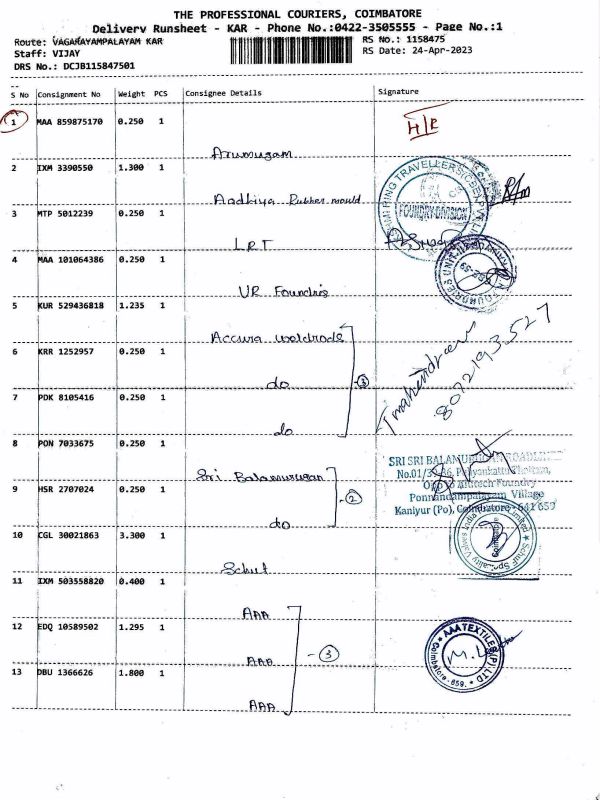 THE PROFESSIONAL COURIERS, COIMBATORE
Delivery Runsheet - KAR - Phone No.:0422-3505555 - Page No.:1
Route: VAGARAYAMPALAYAM KAR
RS No.: 1158475
Staff: VIJAY
RS Date: 24-Apr-2023
DRS No.: DCJB115847501
S No Consignment No Weight PCS Consignee Details Signature
1 MAA 859875170 0.250 1
H/R
Arumugam
2 IXM 3390550 1.300 1
Aadhiya Rubber mould
3 MTP 5012239 0.250 1
LRT
4 MAA 101064386 0.250 1
UR Foundris
5 KUR 529436818 1.235 1
Accura weldrods
6 KRR 1252957 0.250 1
do
3
7 PDK 8105416 0.250 1
do
8 PON 7033675 0.250 1
Sri Balamurugan
9 HSR 2707024 0.250 1
do
2
10 CGL 30021863 3.300 1
Schuf
11 IXM 503558820 0.400 1
AAA
12 EDQ 10589502 1.295 1
AAA
3
13 DBU 1366626 1.800 1
AAA
FOUNDRY-DIVISION
Tmahendran
8072193527
SRI SRI BALAMURUGAN
Foundry
Ponnandampalayam Village
Kaniyur (Po), Coimbatore - 641 659
Coimbatore
AAA TEXTILES (P) LTD
Coimbatore - 659.